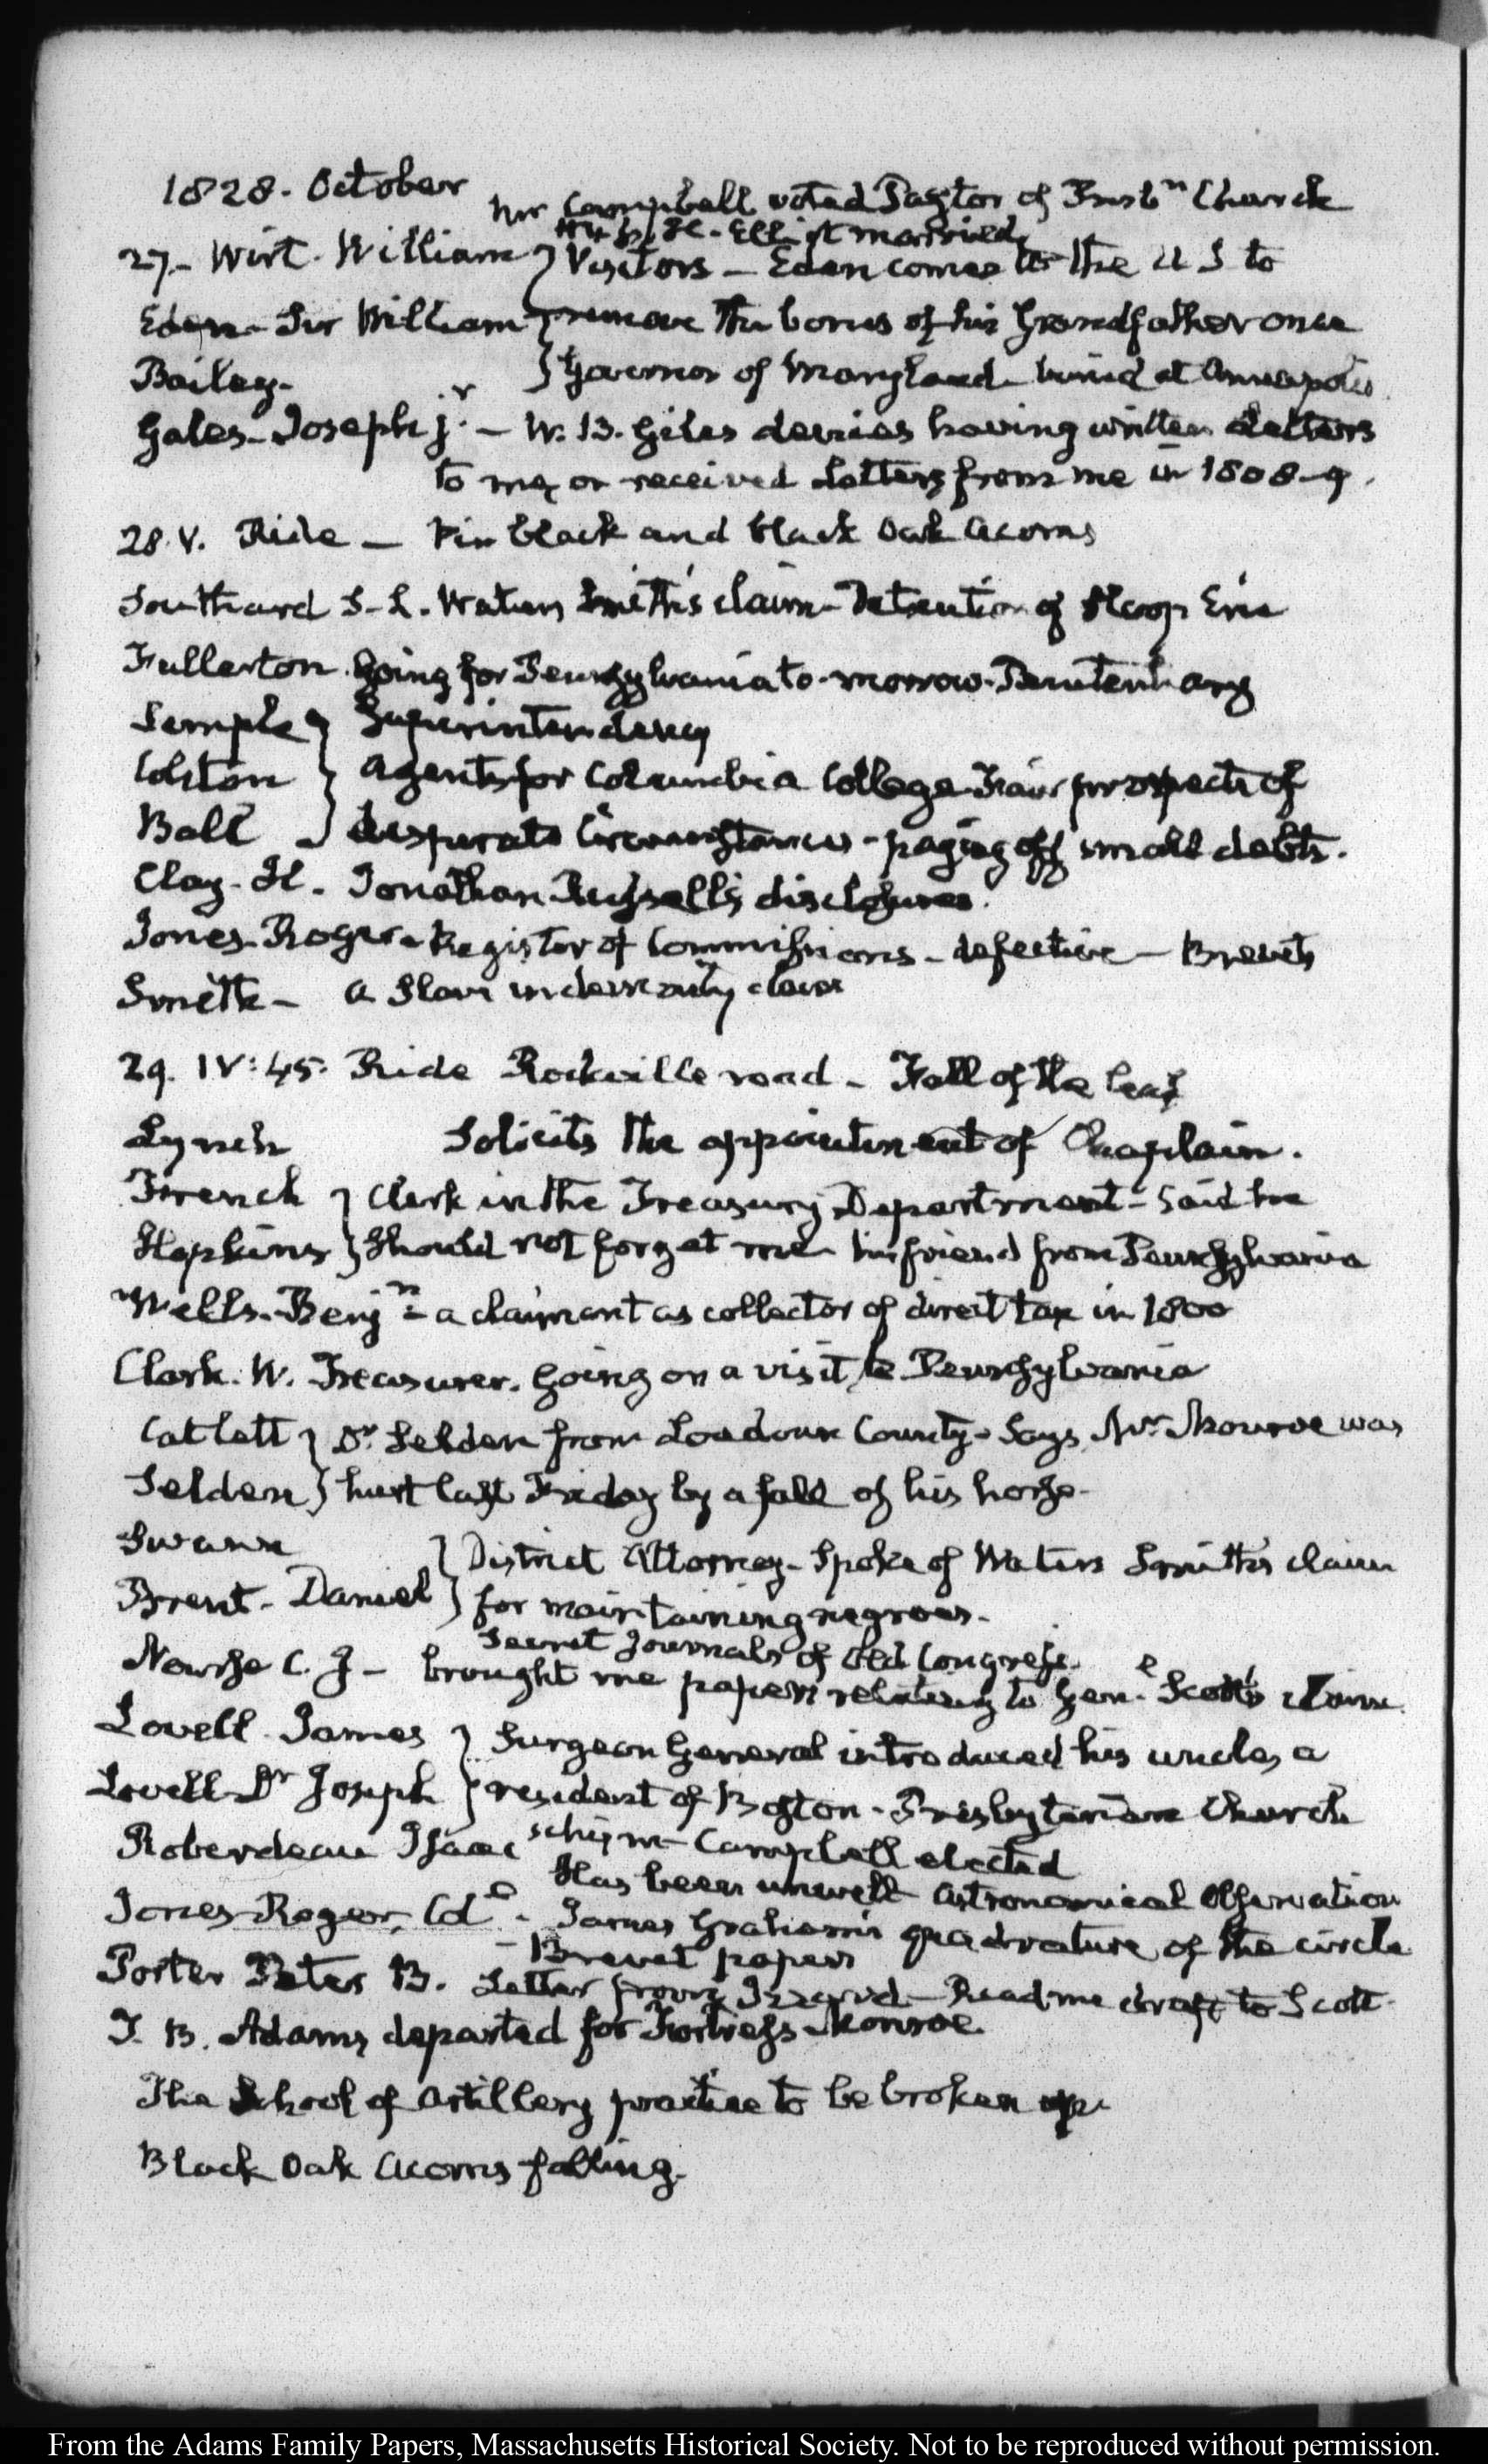 1828. October
Mr Campbell voted Pastor of Presbn Church
H. Elliot married
27. Wirt. William } Visitors — Eden comes to the U S to
Eden. Sir William } remove the bones of his Grandfather once
Bailey. } Governor of Maryland. buried at Annapolis
Gales. Joseph jr. — W. B. Giles denies having written Letters
to me, or received Letters from me in 1808-9.
28. V. Ride — Pin black and black Oak Acorns
Southard S. L. Waters Smith's claim. Detention of Sloop Erie
Fullerton. Going for Pennsylvania to-morrow. Penitentiary
Semple } Superintendency
Colston } Agents for Columbia College. Fair prospects of
Ball } desperate Circumstances. paying off small debts.
Clay. H. Jonathan Russell's disclosures.
Jones. Roger. Register of Commissions. defective — Brevets
Smith — a Slave indemnity claim
29. IV:45. Ride Rockville road. Fall of the leaf
Lynch Solicits the appointment of Chaplain.
French } Clerk in the Treasury Department. Said he
Hopkins } should not forget me. his friend from Pennsylvania
Wells. Benjn. a claimant as collector of direct tax in 1800
Clark. W. Treasurer. Going on a visit to Pennsylvania
Catlett } Dr. Selden from Loudoun County. Says Mr. Monroe was
Selden } hurt last Friday by a fall of his horse.
Swann } District Attorney. Spoke of Waters Smith's claim
Brent. Daniel } for maintaining negroes.
Secret Journals of Old Congress.
Nourse C. J — brought me papers relating to Genl. Scott's claim.
Lovell. James } Surgeon General introduced his uncle, a
Lovell Dr Joseph } resident of Boston. Presbyterian Church
Roberdeau Isaac schism Campbell elected
Has been unwell Astronomical Observation
Jones Roger, Col. James Graham's quadrature of the circle
— Brevet papers
Porter Peter B. Letter from Izard — Read me draft to Scott.
T. B. Adams departed for Fortress Monroe.
The School of Artillery practice to be broken up.
Black Oak Acorns falling.
From the Adams Family Papers, Massachusetts Historical Society. Not to be reproduced without permission.